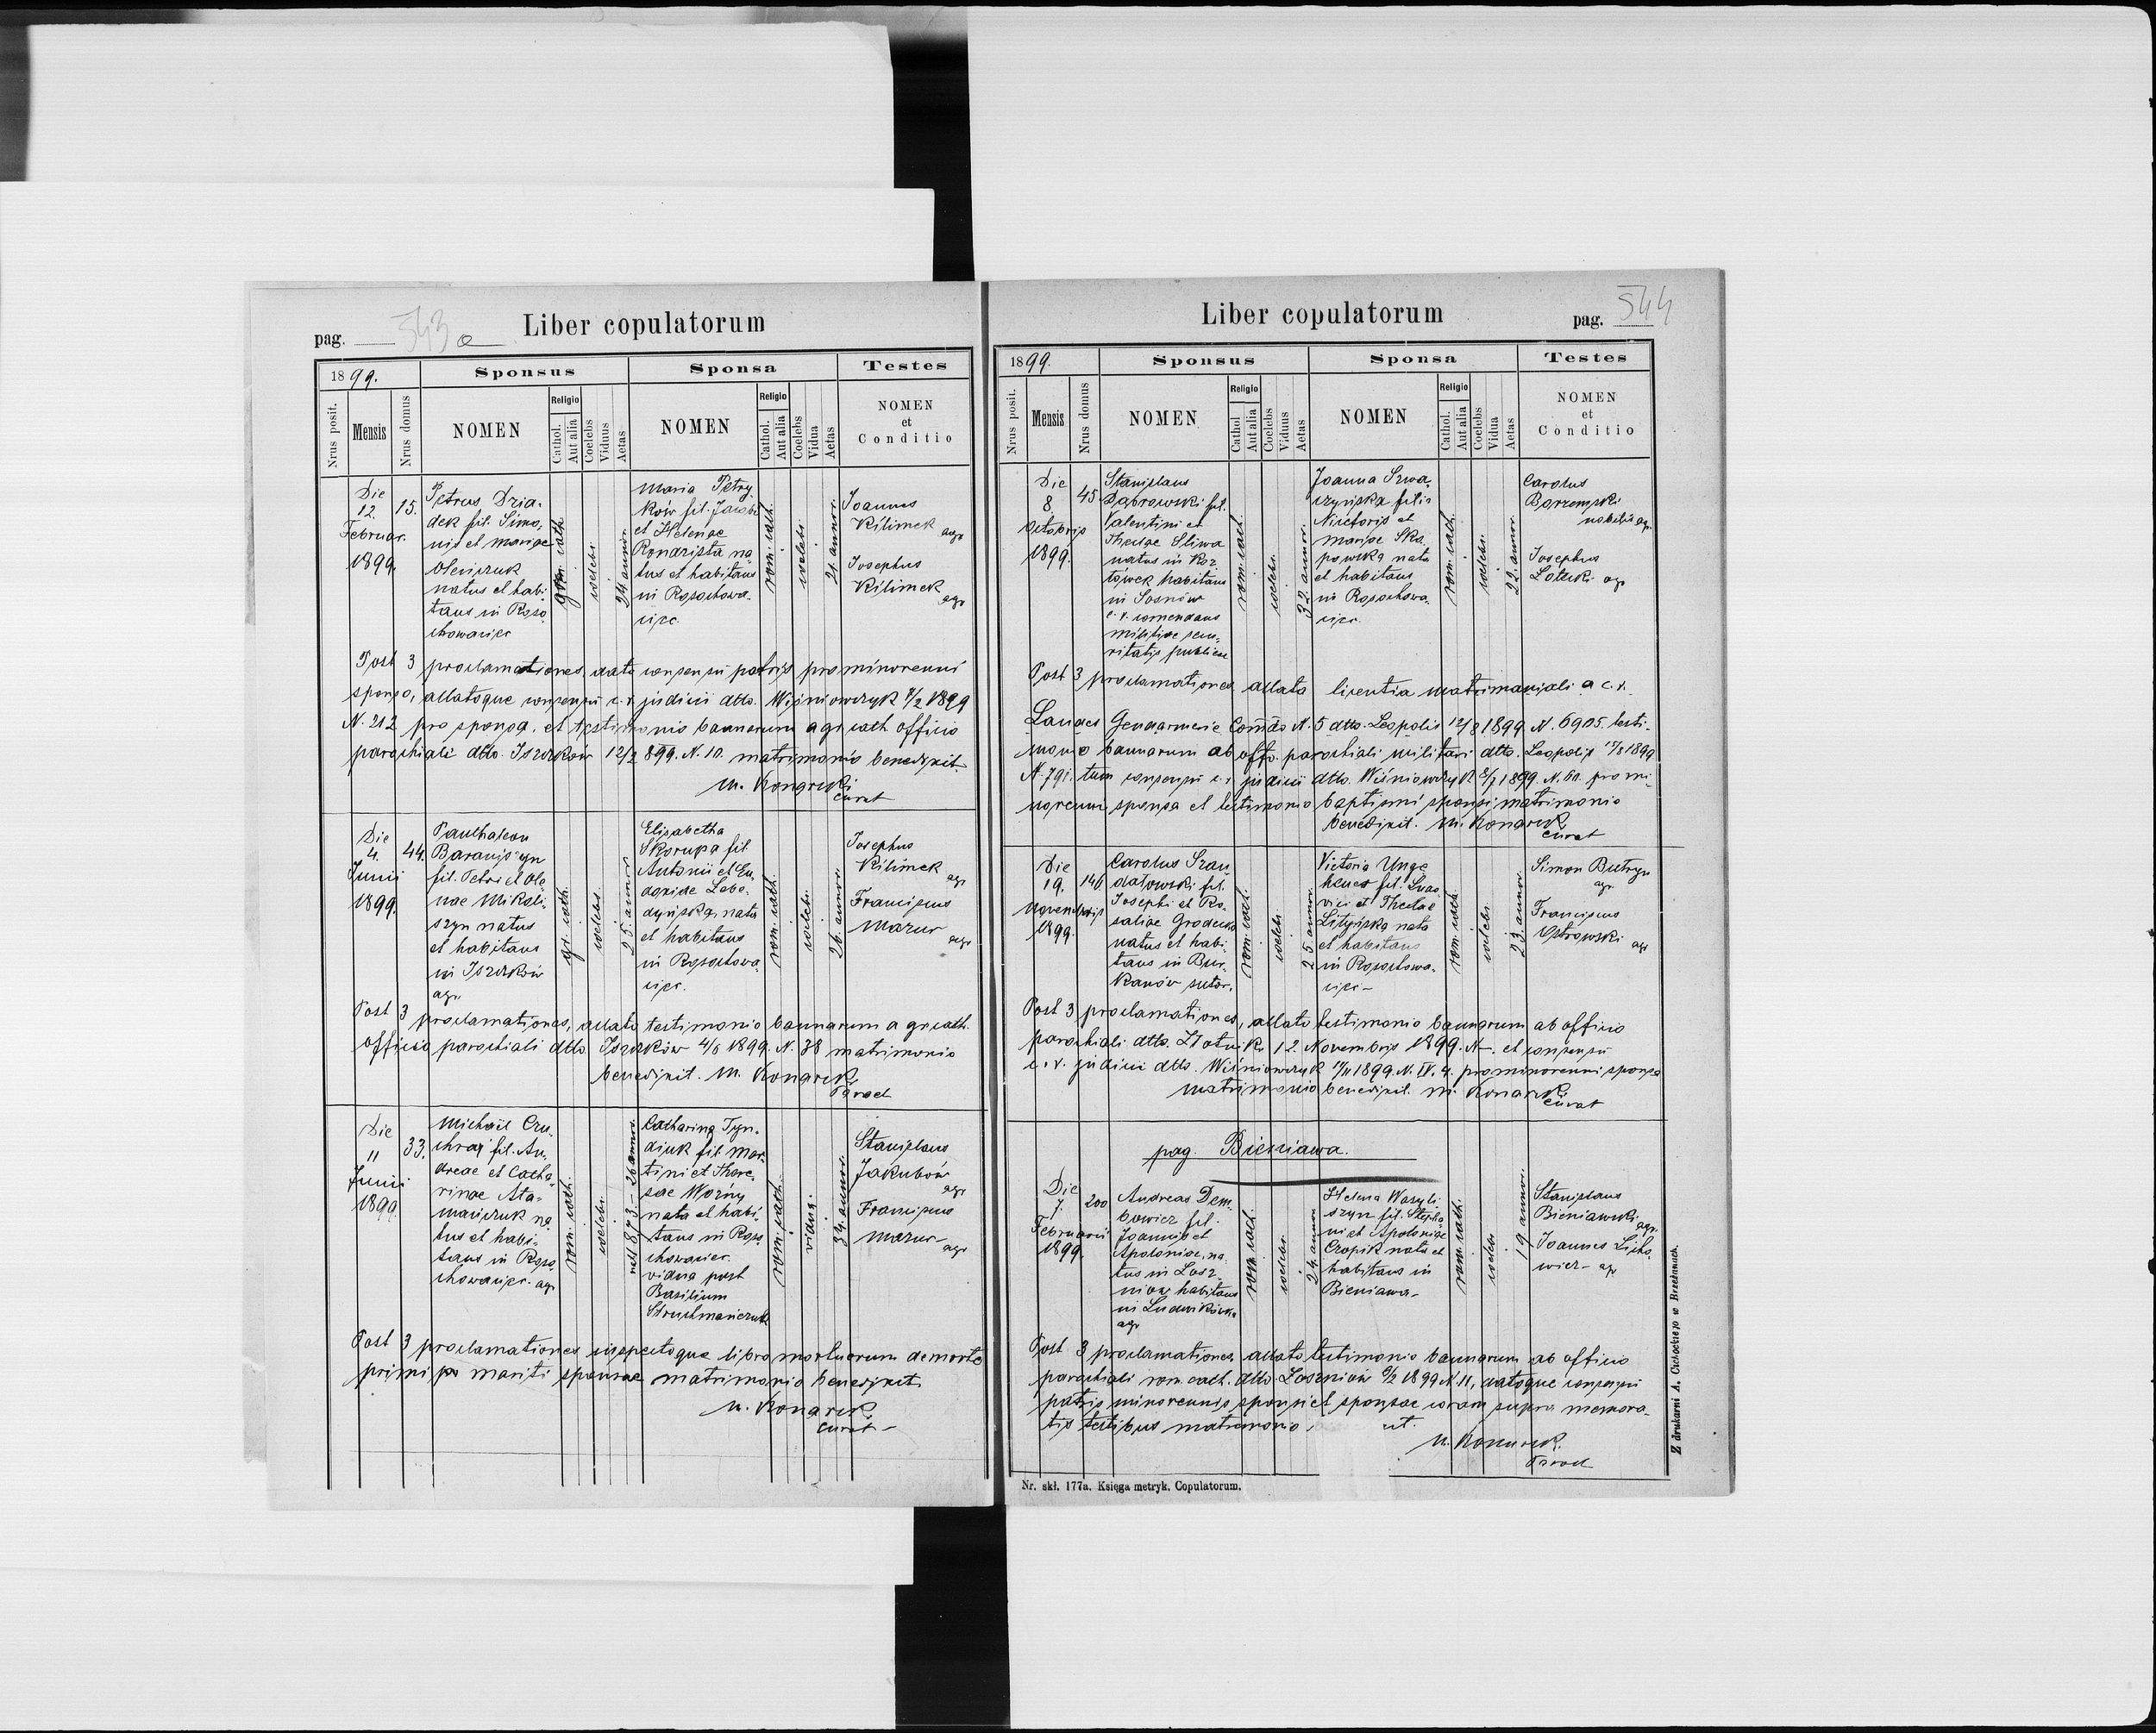 pag. 543a
Liber copulatorum
1899.
Sponsus
Sponsa
Testes
Nrus posit.
Mensis
Nrus domus
NOMEN
Religio
Cathol.
Aut alia
Coelebs
Viduus
Aetas
NOMEN
Religio
Cathol.
Aut alia
Coelebs
Vidua
Aetas
NOMEN
et
Conditio
Die
12.
Februar.
1899.
15.
Petrus Dzia-
dek fil. Simo-
nis et Mariae
Oleńczuk
natus et habi-
tans in Roso-
chowaciec
gr. cath.
coelebs
24 annor.
Maria Petry-
ków fil. Jacobi
et Helenae
na-
tus et habitans
in Rosochowa-
ciec
rom. cath.
coelebs
21 annor.
Joannes
Kilimek
agr
Josephus
Kilimek
agr
Post 3 proclamationes, dato consensu patris pro minorenni
sponso, allatoque consensu c. r. judicii dtto. Wiśniowczyk 7/2 1899
N. 212 pro sponsa, et testimonio bannorum a gr cath officio
parochiali dtto. Iszczków 12/2 899. N. 10. matrimonio benedixit.
M. Konarski
curat
Die
4.
Junii
1899.
44.
Panthaleon
fil. Petri et Ole-
nae Mikoli-
szyn natus
et habitans
in Iszczków
agr.
gr. cath.
coelebs
25 annor.
Elisabetha
Skorupa fil
Antonii et Eu-
doxiae Lebe-
dyńska, nata
et habitans
in Rosochowa-
ciec.
rom. cath.
coelebs
26 annor.
Josephus
Kilimek
agr
Franciscus
Mazur
agr
Post 3 proclamationes, allato testimonio bannorum a gr cath.
officio parochiali dtto. Iszczków 4/6 1899. N. 38 matrimonio
benedixit. M. Konarek
Die
11
Junii
1899
33.
Michail
fil. An-
dreae et Catha-
rinae Ata-
mańczuk na-
tus et habi-
tans in Roso-
chowaciec. agr
rom. cath.
coelebs
nat 1873 - 26 annor.
Catharina Tyn-
diuk fil Mar-
tini et There-
sae Woźny
nata et habi-
tans in Roso-
chowaciec.
vidua post
Basilium
rom. cath.
vidua.
34 annor.
Stanislaus
Jakubów
agr
Franciscus
Mazur
agr
Post 3 proclamationes inspectoque libro mortuorum de morte
primi mariti sponsae matrimonio benedixit
M. Konarek
curat
Liber copulatorum
pag. 544
1899.
Sponsus
Sponsa
Testes
Nrus posit.
Mensis
Nrus domus
NOMEN
Religio
Cathol
Aut alia
Coelebs
Viduus
Aetas
NOMEN
Religio
Cathol.
Aut alia
Coelebs
Vidua
Aetas
NOMEN
et
Conditio
Die
8
Octobris
1899.
45
Stanislaus
Dąbrowski fil.
Valentini et
Theclae Sliwa
natus in Koz-
łówek habitans
in Sosnów
c. r. comendans
militiae secu-
ritatis publicae
rom. cath.
coelebs.
32 annor.
Joanna Szwa-
czyńska filia
Nicetoris et
Mariae Ska-
powska nata
et habitans
in Rosochowa-
ciec.
rom. cath.
coelebs.
22. annor.
Carolus
Barzemski
nobilis agr.
Josephus
Łotecki agr
Post 3 proclamationes, allata licentia matrimoniali a c. r.
Landes Gendarmerie Comdo N. 5 dtto. Leopolis 12/8 1899 N. 6905. testi-
monio bannorum ab offo. parochiali militari dtto. Leopolis 17/8 1899
N. 791. tum consensu c. r. judicii dtto. Wiśniowczyk 1899. N. 60. pro mi-
norenni sponsa et testimonio baptismi sponsi, matrimonio
benedixit. M. Konarek
curat
Die
19.
Novembris
1899.
146
Carolus Szan-
datowski fil.
Josephi et Ro-
saliae Grodecka
natus et habi-
tans in Bur-
kanów sutor.
rom. cath.
coelebs
25 annor.
Victoria Unge-
heuer fil. Ludo-
vici et Theclae
Lityńska nata
et habitans
in Rosochowa-
ciec -
rom. cath.
coelebs
23. annor.
Simon Butryn
agr
Franciscus
Ostrowski agr
Post 3 proclamationes, allato testimonio bannorum ab officio
parochiali dtto. Złotniki 12. Novembris 1899. N-. et consensu
c. r. judicii dtto. Wiśniowczyk 17/11 1899. N. IV. 4. pro minorenni sponsa
matrimonio benedixit. M. Konarek
curat
pag. Bieniawa.
Die
7.
Februarii
1899.
200
Andreas Dem-
bowicz fil.
Joannis et
Apoloniae, na-
tus in Łosz-
niów habitans
in Ludwikówka
agr
rom. cath.
coelebs.
24 annor.
Helena Wasyli-
szyn fil. Stepha-
ni et Apoloniae
Czopik nata et
habitans in
Bieniawa -
rom. cath.
coelebs
19 annor.
Stanislaus
Bieniawski
agr.
Joannes Licho-
wicz - agr
Post 3 proclamationes, allato testimonio bannorum ab officio
parochiali rom. cath. dtto. Łoszniów 6/2 1899 N. 11, datoque consensu
patris minorennis sponsi et sponsae coram supra memora-
tis testibus matrimonio
M. Konarek.
Nr. skł. 177a. Księga metryk. Copulatorum.
Z drukarni A. Cichockiego w Brzeżanach.